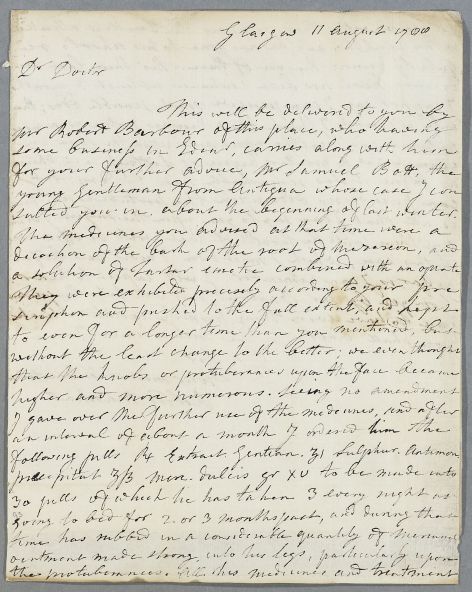 Glasgow 11 August 1788
Dr Doctor
This will be delivered to you by
Mr Robert Barbour of this place, who having
some business in Edinr, carries along with him
for your further advice, Mr Samuel Bott, the
young Gentleman from Antigua whose case I con
sulted you in about the beginning of last winter.
The medicines you advised at that time were a
decoction of the bark of the root of Mezereon, and
a solution of Tartar emetic combined with an opiate
They were exhibited precisely according to your pre
scription and pushed to the full extent, and kept
to even for a longer time than you mentioned, but
without the least change to the better; we even thought
that the knobs or protuberances upon the face became
higher and more numerous. Seeing no amendment
I gave over the further use of the medicines, and after
an interval of about a month I ordered him the
following pills Rx Extract Gentian. ʒi Sulphur. Antimon
precipitat ʒß Merc. dulcis gr XV to be made into
30 pills of which he has taken 3 every night as
going to bed for 2 or 3 months past, and during that
time has rubbed in a considerable quantity of Mercurial
ointment made strong into his legs, particularly upon
the protuberances. All his medicines and treatment